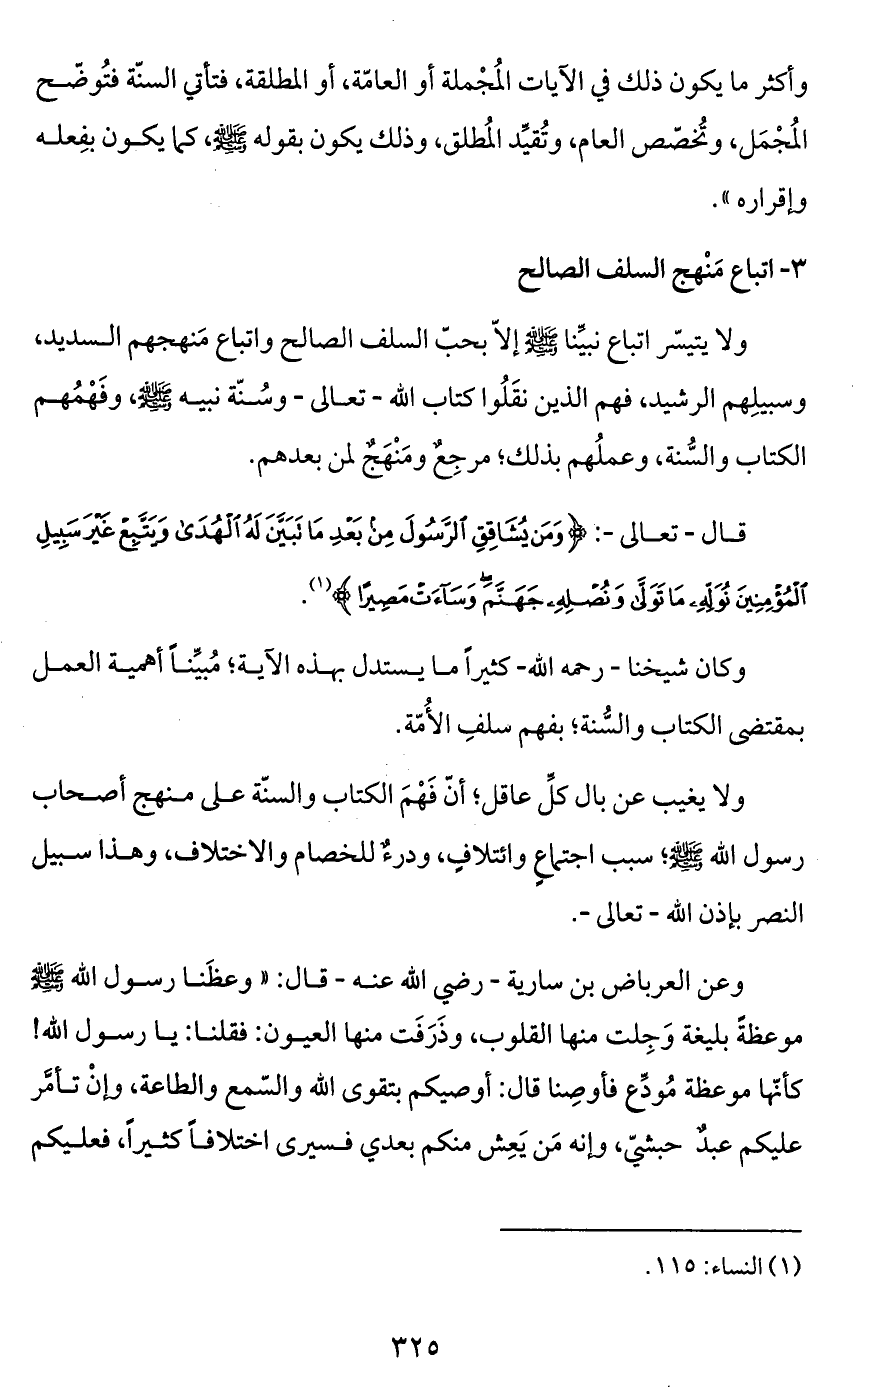 وأكثر ما يكون ذلك في الآيات المُجْملة أو العامّة، أو المطلقة، فتأتي السنّة فتُوضّح
المُجْمَل، وتُخصّص العام، وتُقيِّد المُطلق، وذلك يكون بقوله ﷺ، كما يكون بفِعله
وإقراره».
٣- اتباع مَنْهج السلف الصالح
ولا يتيسّر اتباع نبيِّنا ﷺ إلاّ بحبّ السلف الصالح واتباع مَنهجهم السديد،
وسبيلِهم الرشيد، فهم الذين نقَلُوا كتاب الله - تعالى - وسُنّة نبيه ﷺ، وفَهْمُهم
الكتاب والسُّنة، وعملُهم بذلك؛ مرجِعٌ ومَنْهَجٌ لمن بعدهم.
قال - تعالى -: ﴿وَمَن يُشَاقِقِ ٱلرَّسُولَ مِنۢ بَعْدِ مَا تَبَيَّنَ لَهُ ٱلْهُدَىٰ وَيَتَّبِعْ غَيْرَ سَبِيلِ
ٱلْمُؤْمِنِينَ نُوَلِّهِۦ مَا تَوَلَّىٰ وَنُصْلِهِۦ جَهَنَّمَ ۖ وَسَآءَتْ مَصِيرًا﴾(١).
وكان شيخنا - رحمه الله- كثيراً ما يستدل بهذه الآية؛ مُبيِّناً أهمية العمل
بمقتضى الكتاب والسُّنة؛ بفهم سلفِ الأُمّة.
ولا يغيب عن بال كلِّ عاقل؛ أنّ فَهْمَ الكتاب والسنّة على منهج أصحاب
رسول الله ﷺ؛ سبب اجتماعٍ وائتلافٍ، ودرءٌ للخصام والاختلاف، وهذا سبيل
النصر بإذن الله - تعالى -.
وعن العرباض بن سارية - رضي الله عنه - قال: «وعظَنا رسول الله ﷺ
موعظةً بليغة وَجِلت منها القلوب، وذَرَفَت منها العيون: فقلنا: يا رسول الله!
كأنّها موعظة مُودِّع فأوصِنا قال: أوصيكم بتقوى الله والسّمع والطاعة، وإنْ تأمَّر
عليكم عبدٌ حبشيّ، وإنه مَن يَعِش منكم بعدي فسيرى اختلافاً كثيراً، فعليكم
(١) النساء: ١١٥.
٣٢٥